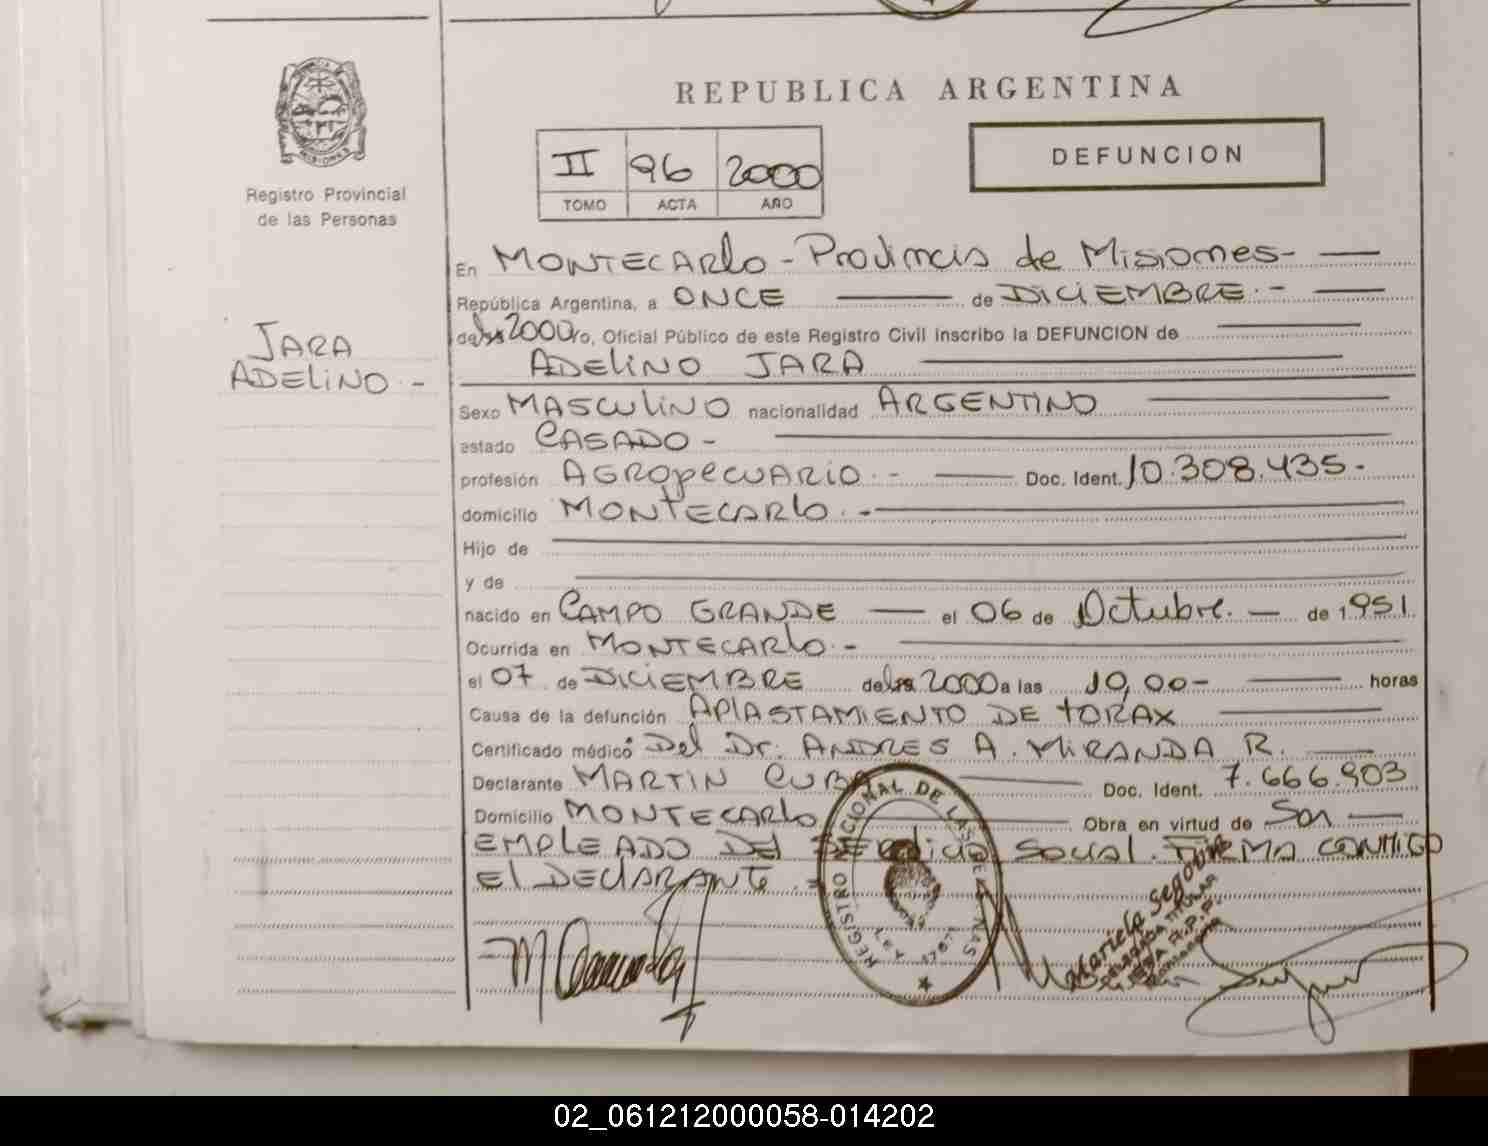 REPUBLICA ARGENTINA
II 96 2000
TOMO ACTA AÑO
DEFUNCION
Registro Provincial
de las Personas
JARA
ADELINO.-
En MONTECARLO - Provincia de Misiones-
República Argentina, a ONCE de DICIEMBRE.-
2000 Oficial Público de este Registro Civil inscribo la DEFUNCION de
ADELINO JARA
Sexo MASCULINO nacionalidad ARGENTINO
estado CASADO-
profesión AGROPECUARIO.- Doc. Ident. 10.308.435-
domicilio MONTECARLO.-
Hijo de
y de
nacido en CAMPO GRANDE el 06 de Octubre. de 1951.
Ocurrida en MONTECARLO.-
el 07 de DICIEMBRE 2000 a las 10,00- horas
Causa de la defunción APLASTAMIENTO DE TORAX
Certificado médico Del Dr. ANDRES A. MIRANDA R.
Declarante MARTIN CUBA Doc. Ident. 7.666.903
Domicilio MONTECARLO Obra en virtud de Ser
EMPLEADO DEL Servicio Social. FIRMA CONMIGO
El DECLARANTE.-
REGISTRO NACIONAL DE LAS PERSONAS
Mariela Segovia
TITULAR
02_061212000058-014202